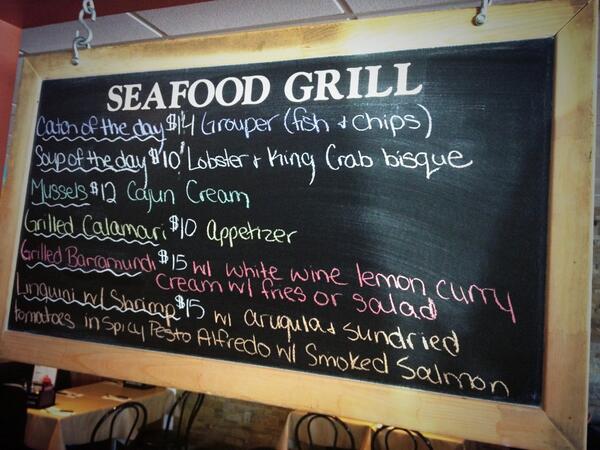 SEAFOOD GRILL
Catch of the day $14 Grouper (fish + chips)
Soup of the day $10 Lobster + King Crab bisque
Mussels $12 Cajun Cream
Grilled Calamari $10 Appetizer
Grilled Barramundi $15 w/ white wine lemon curry
cream w/ fries or salad
Linguini w/ Shrimp $15 w/ arugula + sundried
tomatoes in spicy Pesto Alfredo w/ Smoked Salmon